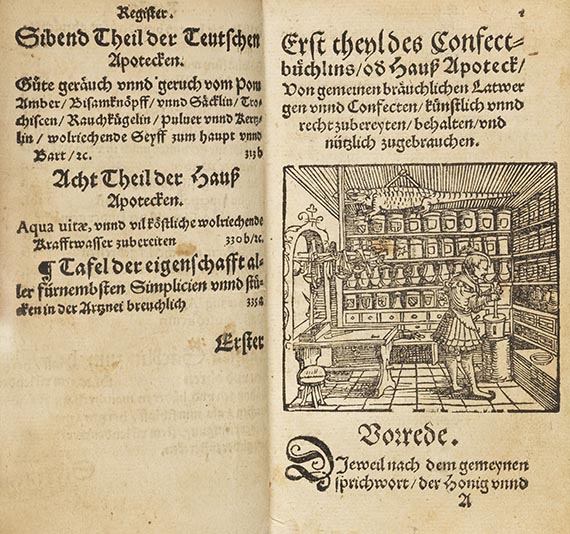 Register.
Sibend Theil der Teutschen
Apotecken.
Güte geräuch vnnd geruch vom Pom
Amber/ Bisamknöpff/ vnnd Säcklin/ Tro-
chiscen/ Rauchkügelin/ Puluer vnnd Kertz-
lin/ wolriechende Seyff zum haupt vnnd
Bart/ ꝛc. 313 b
Acht Theil der Hauß
Apotecken.
Aqua uitæ, vnnd vil köstliche wolriechende
Krafftwasser zubereiten 330 b/ꝛc.
¶ Tafel der eigenschafft al-
ler fürnembsten Simplicien vnnd stü-
cken in der Artznei breuchlich 335 a
Erster
Erst theyl des Confect-
büchlins/ od Hauß Apoteck/
Von gemeinen bräuchlichen Latwer
gen vnnd Confecten/ künstlich vnnd
recht zubereyten/ behalten/ vnd
nützlich zugebrauchen.
Vorrede.
DJeweil nach dem gemeynen
sprichwort/ der Honig vnnd
A